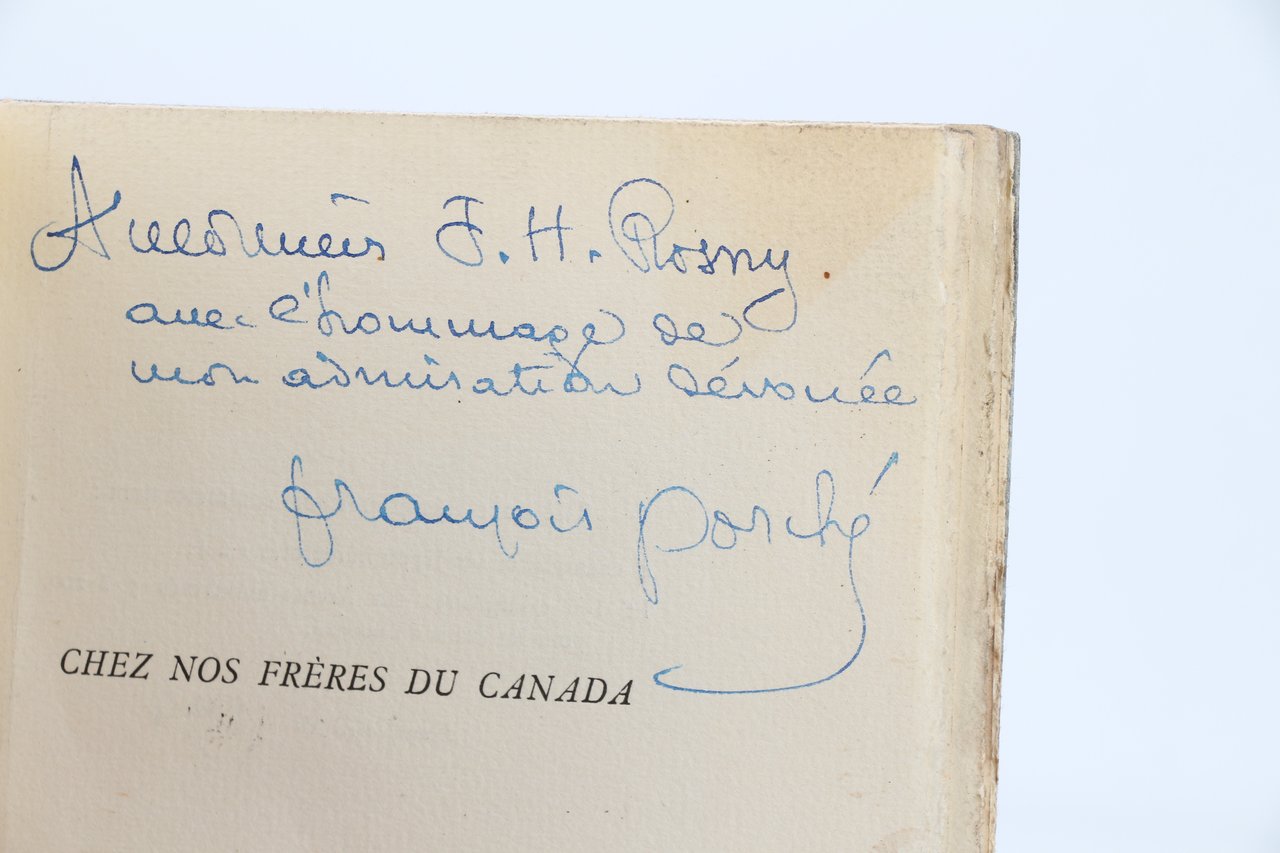 J. H. Rosny
avec l'hommage de
mon admiration dévouée
françois porché
CHEZ NOS FRÈRES DU CANADA